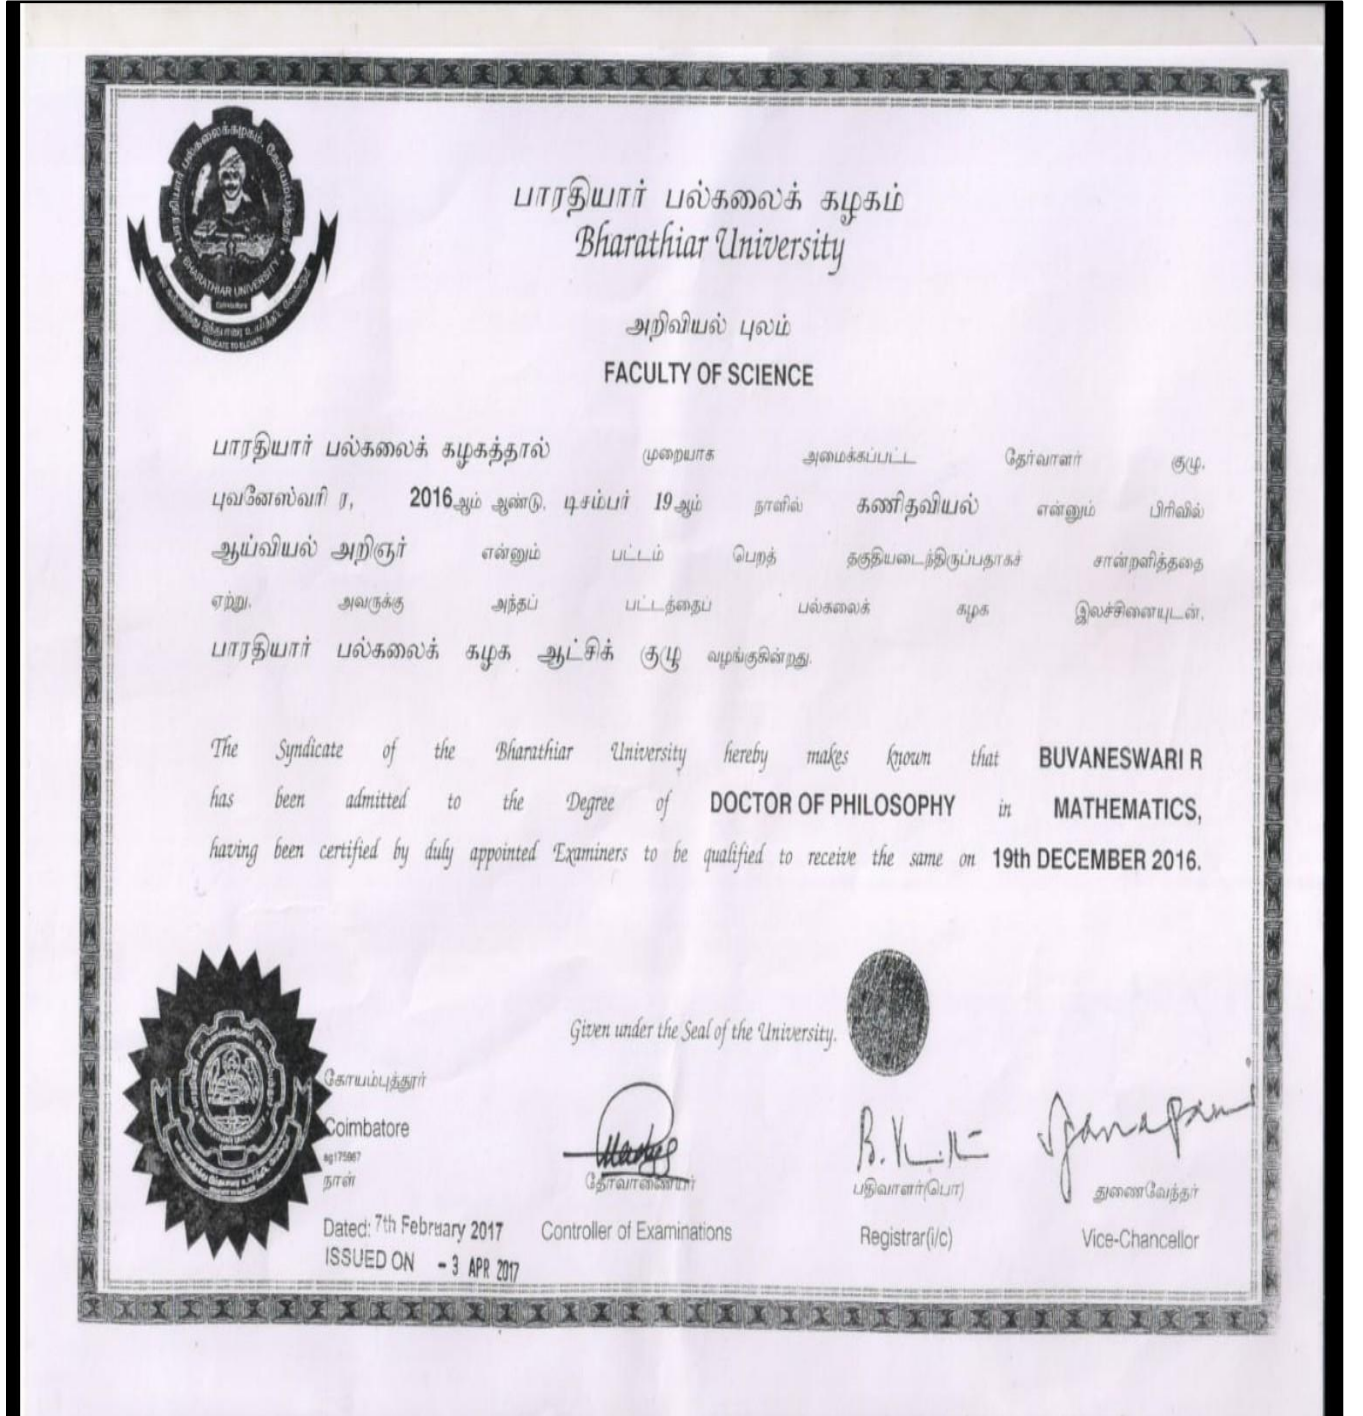 பாரதியார் பல்கலைக் கழகம்
Bharathiar University
அறிவியல் புலம்
FACULTY OF SCIENCE
பாரதியார் பல்கலைக் கழகத்தால் முறையாக அமைக்கப்பட்ட தேர்வாளர் குழு,
புவனேஸ்வரி ர, 2016ஆம் ஆண்டு, டிசம்பர் 19ஆம் நாளில் கணிதவியல் என்னும் பிரிவில்
ஆய்வியல் அறிஞர் என்னும் பட்டம் பெறத் தகுதியடைந்திருப்பதாகச் சான்றளித்ததை
ஏற்று, அவருக்கு அந்தப் பட்டத்தைப் பல்கலைக் கழக இலச்சினையுடன்,
பாரதியார் பல்கலைக் கழக ஆட்சிக் குழு வழங்குகின்றது.
The Syndicate of the Bharathiar University hereby makes known that BUVANESWARI R
has been admitted to the Degree of DOCTOR OF PHILOSOPHY in MATHEMATICS,
having been certified by duly appointed Examiners to be qualified to receive the same on 19th DECEMBER 2016.
Given under the Seal of the University.
கோயம்புத்தூர்
Coimbatore
நாள்
Dated: 7th February 2017
ISSUED ON - 3 APR 2017
தேர்வாணையர்
Controller of Examinations
பதிவாளர்(பொ)
Registrar(i/c)
துணைவேந்தர்
Vice-Chancellor
பாரதியார் பல்கலைக்கழகம், கோயம்புத்தூர்
BHARATHIAR UNIVERSITY
Coimbatore
EDUCATE TO ELEVATE